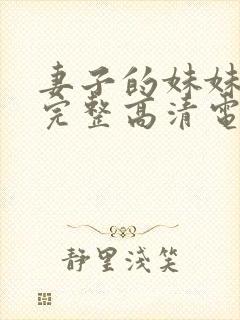 妻子的妹妹
完整高清電
静里淺笑